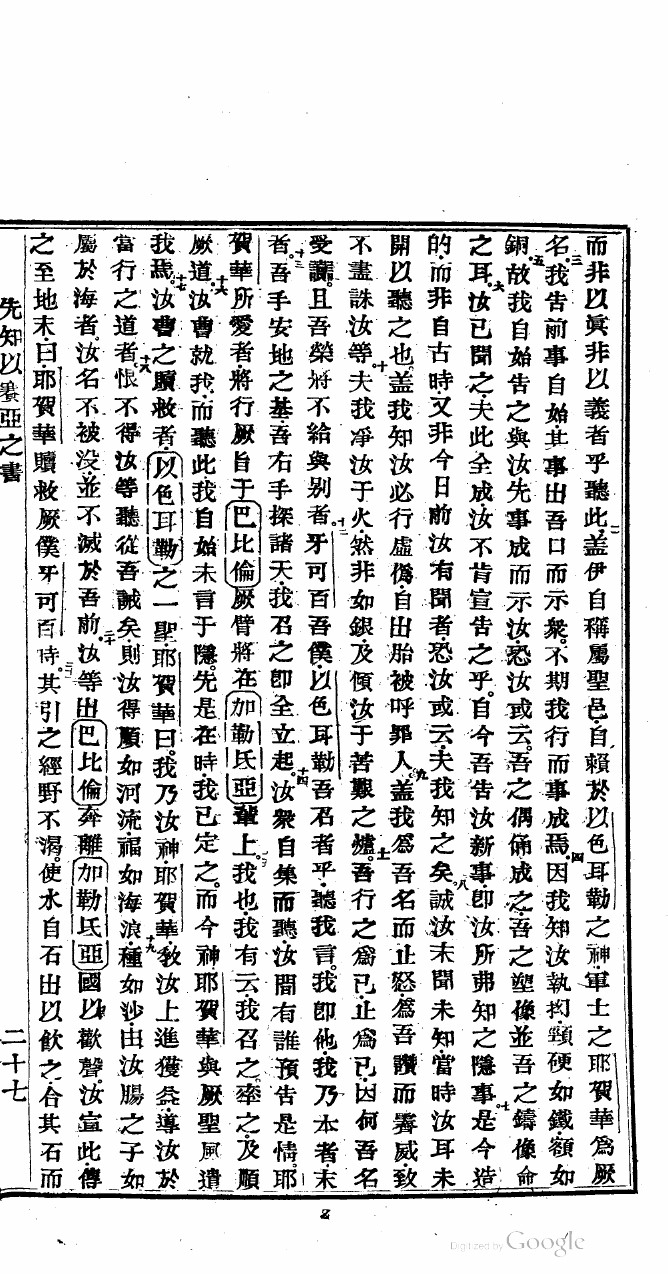 而非以眞非以義者乎聽此二蓋伊自稱屬聖邑自賴於以色耳勒之神軍士之耶賀華爲厥
名三我告前事自始其事出吾口而示衆不期我行而事成焉四因我知汝執拘頸硬如鐵額如
銅五故我自始告之與汝先事成而示汝恐汝或云吾之偶俑成之吾之塑像並吾之鑄像命
之耳六汝已聞之夫此全成汝不肯宣告之乎自今吾告汝新事卽汝所弗知之隱事七是今造
的而非自古時又非今日前汝有聞者恐汝或云夫我知之矣八誠汝未聞未知當時汝耳未
開以聽之也蓋我知汝必行虛僞自出胎被呼罪人九蓋我爲吾名而止怒爲吾讚而霽威致
不盡誅汝等十夫我凈汝于火然非如銀及傾汝于苦艱之爐十一吾行之爲已止爲已因何吾名
受讟且吾榮將不給與别者十二牙可百吾僕以色耳勒吾召者乎聽我言我卽他我乃本者末
者十三吾手安地之基吾右手探諸天我召之卽全立起十四汝衆自集而聽汝間有誰預告是情耶
賀華所愛者將行厥旨于巴比倫厥臂將在加勒氐亞輩上我也我有云我召之率之及順
厥道十六汝曹就我而聽此我自始未言于隱先是在時我已定之而今神耶賀華與厥聖風遣
我焉十七汝曹之贖救者以色耳勒之一聖耶賀華曰我乃汝神耶賀華敎汝上進獲益導汝於
當行之道者十八恨不得汝等聽從吾誡矣則汝得順如河流福如海浪十九種如沙由汝腸之子如
屬於海者汝名不被没並不滅於吾前二十汝等出巴比倫奔離加勒氐亞國以歡聲汝宣此傳
之至地末曰耶賀華贖救厥僕牙可百時其引之經野不渴使水自石出以飲之合其石而
先知以賽亞之書
二十七
Z
Digitized by Google